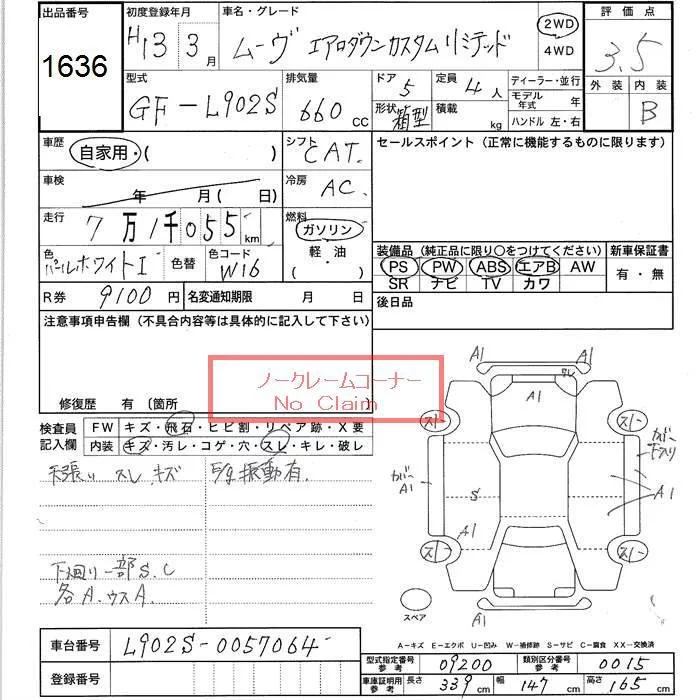 出品番号
1636
初度登録年月
H13 3月
車名・グレード
ムーヴ エアロダウンカスタムリミテッド
2WD
4WD
評価点
3.5
外装 内装
B
型式
GF-L902S
排気量
660 cc
ドア
5
形状
箱型
定員
4人
積載
kg
ディーラー・並行
モデル年式 年
ハンドル 左・右
車歴
自家用・( )
シフト
CAT.
セールスポイント (正常に機能するものに限ります)
車検
年 月( 日)
冷房
AC.
走行
7万1千055 km
燃料
ガソリン
軽・油
( )
色
パールホワイトI
色替
色コード
W16
装備品 (純正品に限り○をつけてください)
新車保証書
PS PW ABS エアB AW
SR ナビ TV カワ
有・無
R券 9100円
名変通知期限 月 日
後日品
注意事項申告欄 (不具合内容等は具体的に記入して下さい)
ノークレームコーナー
No Claim
修復歴 有 〔箇所
検査員
記入欄
FW キズ・飛石・ヒビ割・リペア跡・X要
内装 キズ・汚レ・コゲ・穴・スレ・キレ・破レ
天張り スレ キズ
E/g 振動有.
下廻り一部S.C
各A.ウスA
A1
A1
スレ
A1
スレ
スレ
カバー
A1
S
A1
カバー
下スリ
A1
スレ
スレ
スペア
A1
A-キズ E-エクボ U-凹み W-補修跡 S-サビ C-腐食 XX-交換済
車台番号
L902S-0057064
登録番号
型式指定番号 参考
09200
類別区分番号 参考
0015
車庫証明用 参考
長さ 339 cm 幅 147 cm 高さ 165 cm